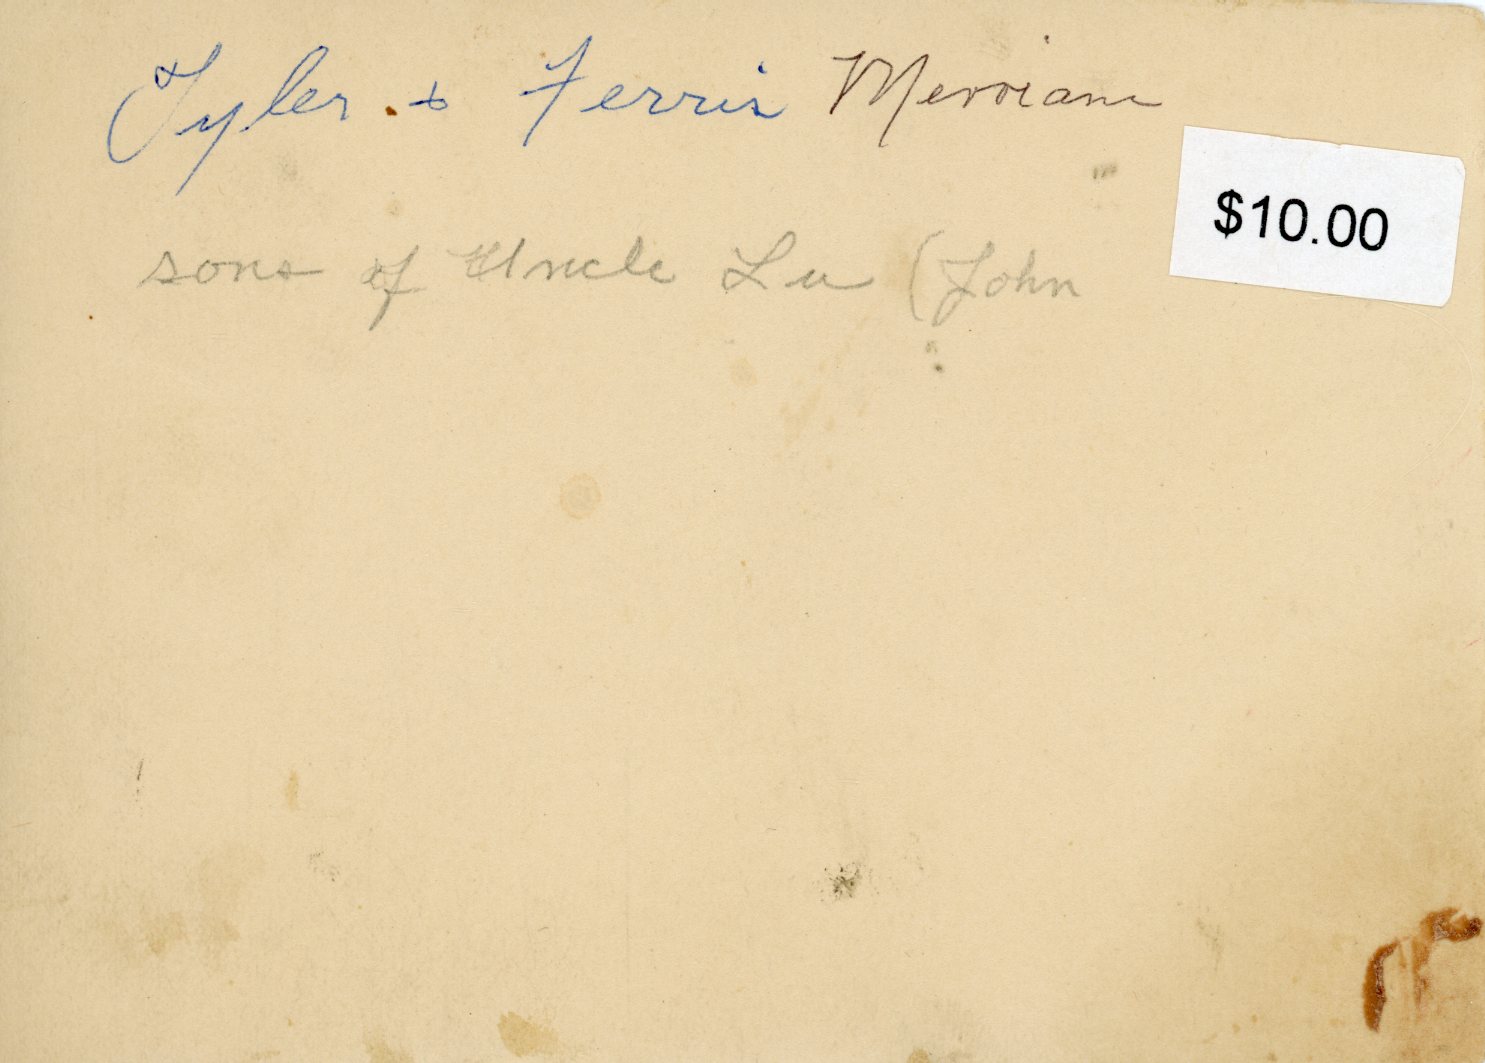 Tyler & Ferris Merriam
$10.00
sons of Uncle Lu (John